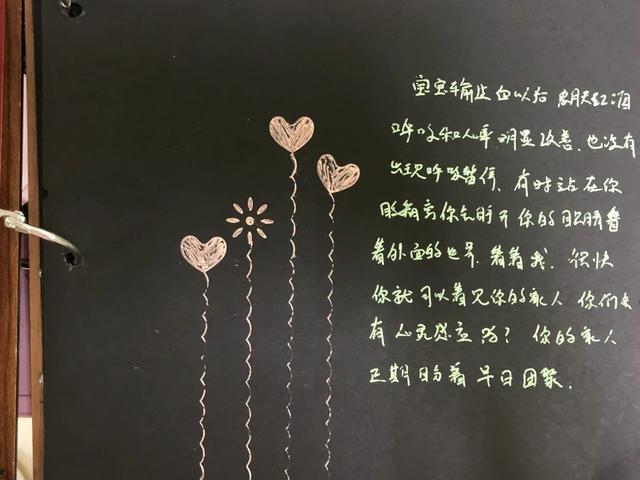 宝宝输血以后
呼吸和心率明显改善、也没有
出现呼吸暂停、有时站在你
的箱旁你会睁开你的眼睛看
看外面的世界、看看我、很快
你就可以看见你的家人 你们会
有心灵感应吗？ 你的家人
正期盼着早日团聚.